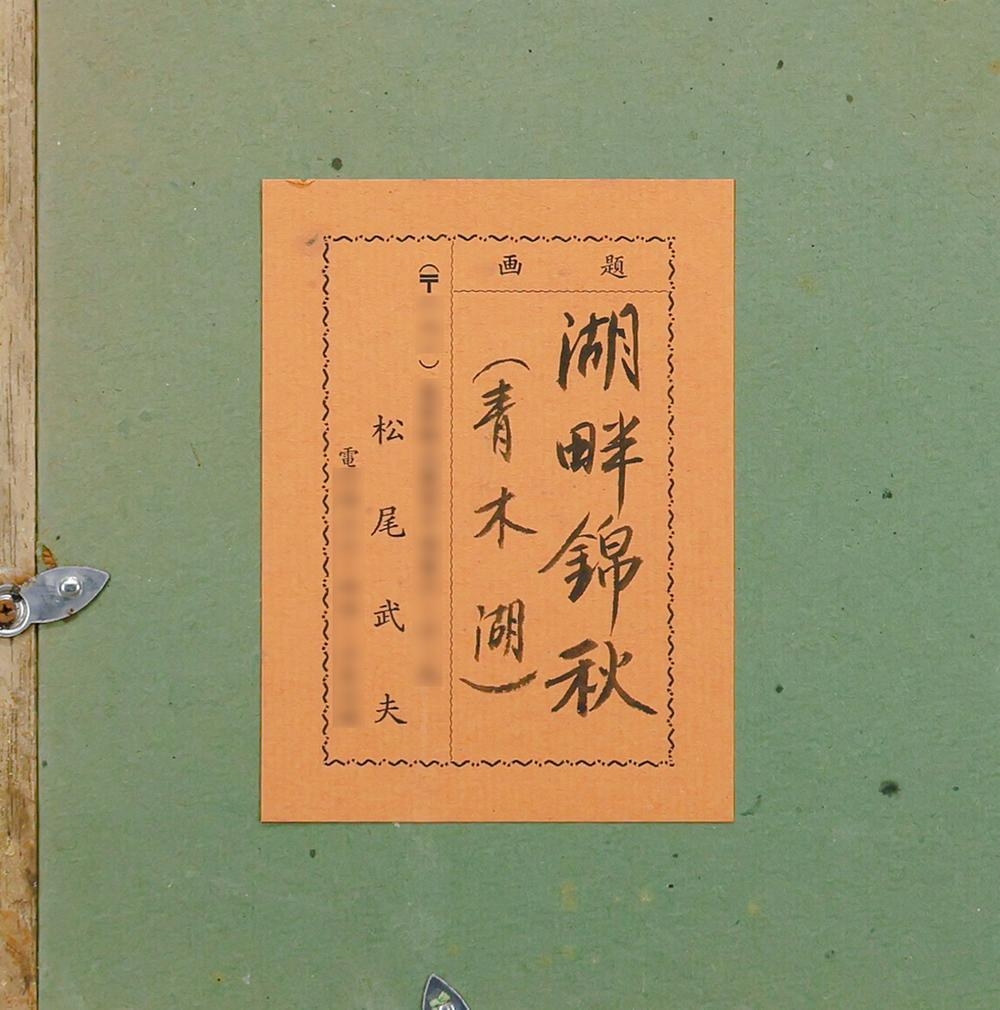 画題
湖畔錦秋
（青木湖）
（〒 ）
松尾武夫
電